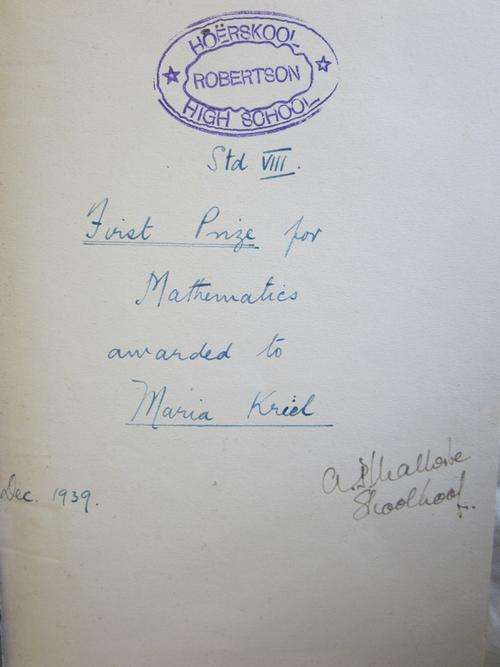 HOËRSKOOL
ROBERTSON
HIGH SCHOOL
Std VIII.
First Prize for
Mathematics
awarded to
Maria Kriël
Dec. 1939.
Skoolhoof